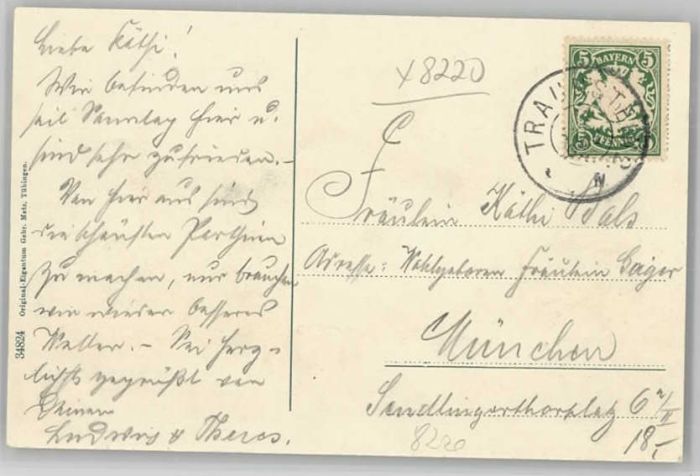 Liebe Käthi!
Wir befinden uns
seit Samstag hier u.
sind sehr zufrieden.-
Von hier aus sind
die schönsten Parthien
zu machen, nur brauchen
wir wieder besseres
Wetter. - Sei herz-
lichst gegrüßt von
Deinen
Ludwig &
34824 Original-Eigentum Gebr. Metz, Tübingen.
x8220
5 BAYERN 5
PFENNIG
TRAUNSTEIN
Fräulein Käthi
Adresse: Wohlgeboren Fräulein Geiger
München
Sendlingerthorplatz 6a/II
8220
18,-